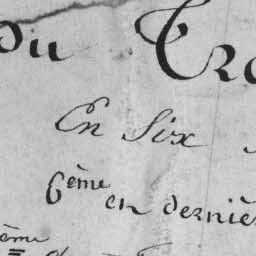 du Tra
En Six
6ème en derniè
ème